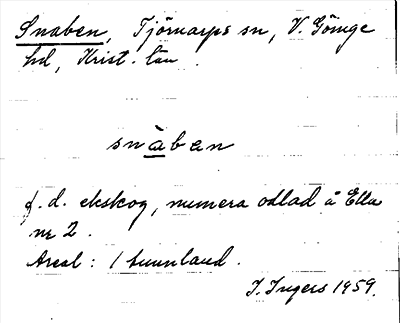 Snaben, Tjörnarps sn, V. Göinge
hd, Krist. län.
snàben
f.d. ekskog, numera odlad å Ella
nr 2.
Areal: 1 tunnland.
I. Ingers 1959.